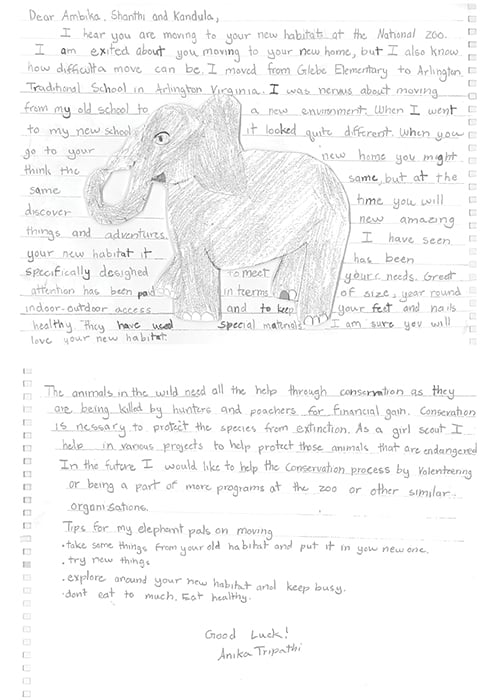 Dear Ambika, Shanthi and Kandula,
I hear you are moving to your new habitat at the National Zoo.
I am exited about you moving to your new home, but I also know
how difficult a move can be. I moved from Glebe Elementary to Arlington
Traditional School in Arlington Virginia. I was nervus about moving
from my old school to a new environment. When I went
to my new school it looked quite different. When you
go to your new home you might
think the same, but at the
same time you will
discover new amazing
things and adventures. I have seen
your new habitat it has been
specifically desighed to meet your needs. Great
attention has been paid in terms of size, year round
indoor-outdoor access and to keep your feet and nails
healthy. They have used special materials. I am sure you will
love your new habitat.
The animals in the wild need all the help through conservation as they
are being killed by hunters and poachers for financial gain. Conservation
is nessary to protect the species from extinction. As a girl scout I
help in various projects to help protect those animals that are endangered
In the future I would like to help the conservation process by Volenteering
or being a part of more programs at the zoo or other similar
organisations.
Tips for my elephant pals on moving
.take some things from your old habitat and put it in your new one.
.try new things
.explore around your new habitat and keep busy.
.dont eat to much. Eat healthy.
Good Luck!
Anika Tripathi